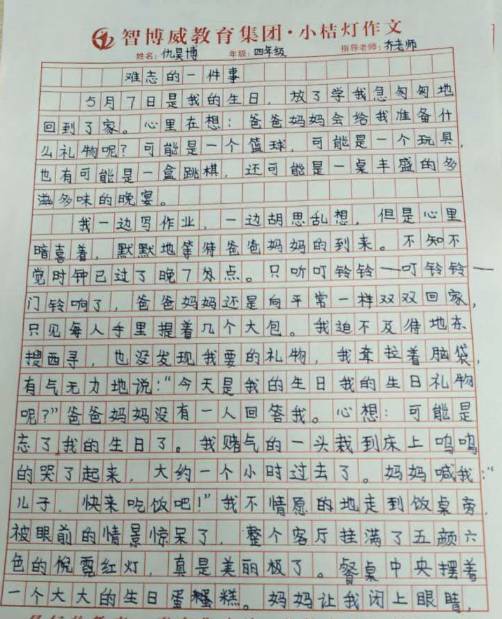 智博威教育集团·小桔灯作文
姓名：仇昊博 年级：四年级 指导老师：乔老师
难忘的一件事
5月7日是我的生日，放了学我急匆匆地
回到了家。心里在想：爸爸妈妈会给我准备什
么礼物呢？可能是一个篮球，可能是一个玩具，
也有可能是一盒跳棋，还可能是一桌丰盛的多
滋多味的晚宴。
我一边写作业，一边胡思乱想，但是心里
暗喜着，默默地等待爸爸妈妈的到来。不知不
觉时钟已过了晚7点。只听叮铃铃一叮铃铃一
门铃响了，爸爸妈妈还是向平常一样双双回家，
只见每人手里提着几个大包。我迫不及待地东
搜西寻，也没发现我要的礼物，我耷拉着脑袋，
有气无力地说：“今天是我的生日我的生日礼物
呢？”爸爸妈妈没有一人回答我。心想：可能是
忘了我的生日了。我赌气的一头栽到床上呜呜
的哭了起来，大约一个小时过去了。妈妈喊我：“
儿子，快来吃饭吧！”我不情愿的地走到饭桌旁，
被眼前的情景惊呆了，整个客厅挂满了五颜六
色的霓红灯，真是美丽极了。餐桌中央摆着
一个大大的生日蛋糕。妈妈让我闭上眼睛，